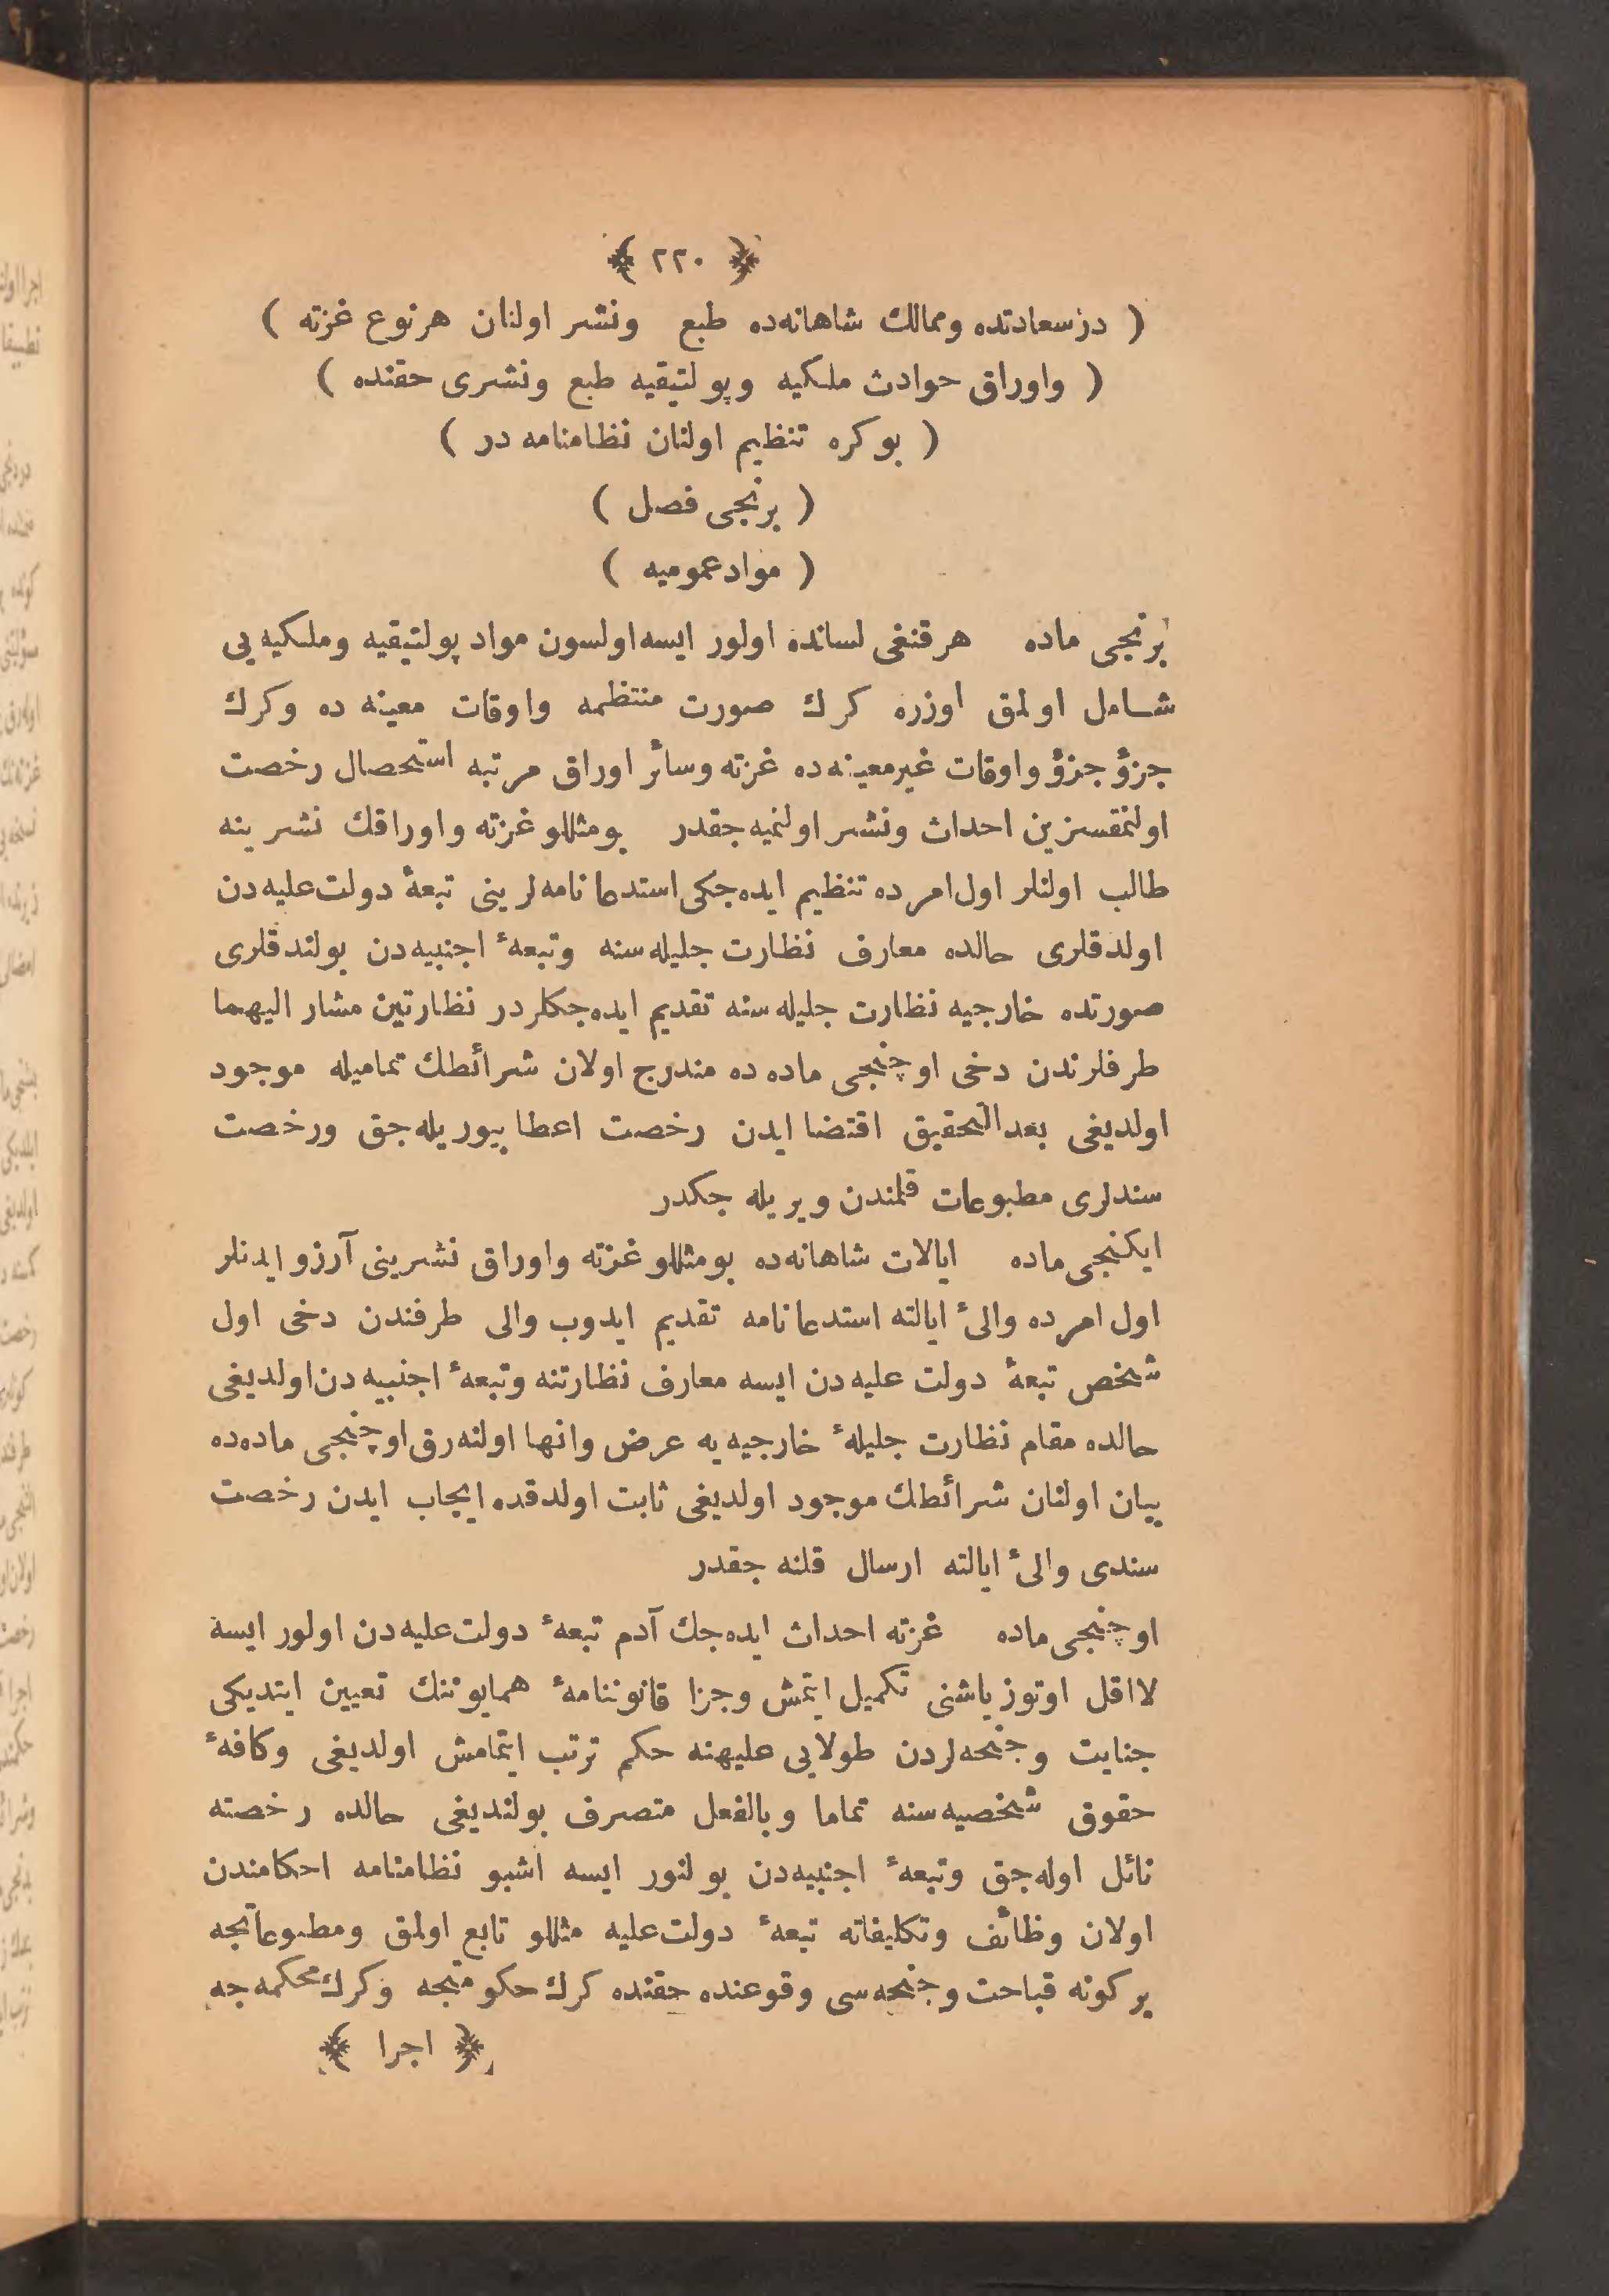 ﴿ ٢٢٠ ﴾
( درسعادتده وممالك شاهانه‌ده طبع ونشر اولنان هرنوع غزته )
( واوراق حوادث ملكيه وپولتيقيه طبع ونشرى حقنده )
( بوكره تنظيم اولنان نظامنامه در )
( برنجى فصل )
( مواد عموميه )
برنجى ماده هرقنغى لسانده اولور ايسه اولسون مواد پولتيقيه وملكيه‌يى
شامل اولمق اوزره كرك صورت منتظمه واوقات معينه ده وكرك
جزؤ جزؤ واوقات غيرمعينه‌ده غزته وسائر اوراق مرتبه استحصال رخصت
اولنمقسزين احداث ونشر اولنميه جقدر بومثللو غزته واوراقك نشرينه
طالب اولنلر اول‌امرده تنظيم ايده‌جكى استدعانامه‌لرينى تبعۀ دولت‌عليه‌دن
اولدقلرى حالده معارف نظارت جليله‌سنه وتبعۀ اجنبيه‌دن بولندقلرى
صورتده خارجيه نظارت جليله‌سنه تقديم ايده‌جكلردر نظارتين مشار اليهما
طرفلرندن دخى اوچنجى ماده ده مندرج اولان شرائطك تماميله موجود
اولديغى بعدالتحقيق اقتضا ايدن رخصت اعطا بيوريله‌جق ورخصت
سندلرى مطبوعات قلمندن ويريله جكدر
ايكنجى‌ماده ايالات شاهانه‌ده بومثللو غزته واوراق نشرينى آرزو ايدنلر
اول امرده والئ ايالته استدعانامه تقديم ايدوب والى طرفندن دخى اول
شخص تبعۀ دولت عليه‌دن ايسه معارف نظارتنه وتبعۀ اجنبيه‌دن‌اولديغى
حالده مقام نظارت جليلۀ خارجيه‌يه عرض وانها اولنه‌رق‌اوچنجى ماده‌ده
بيان اولنان شرائطك موجود اولديغى ثابت اولدقده ايجاب ايدن رخصت
سندى والئ ايالته ارسال قلنه جقدر
اوچنجى‌ماده غزته احداث ايده‌جك آدم تبعۀ دولت‌عليه‌دن اولور ايسه
لااقل اوتوز ياشنى تكميل ايتمش وجزا قانوننامۀ همايوننك تعيين ايتديكى
جنايت وجنحه‌لردن طولايى عليهنه حكم ترتب ايتمامش اولديغى وكافۀ
حقوق شخصيه‌سنه تماما وبالفعل متصرف بولنديغى حالده رخصته
نائل اوله‌جق وتبعۀ اجنبيه‌دن بولنور ايسه اشبو نظامنامه احكامندن
اولان وظائف وتكليفاته تبعۀ دولت‌عليه مثللو تابع اولمق ومطبوعاتجه
بركونه قباحت وجنحه‌سى وقوعنده حقنده كرك حكومتجه وكرك محكمه‌جه
﴿ اجرا ﴾